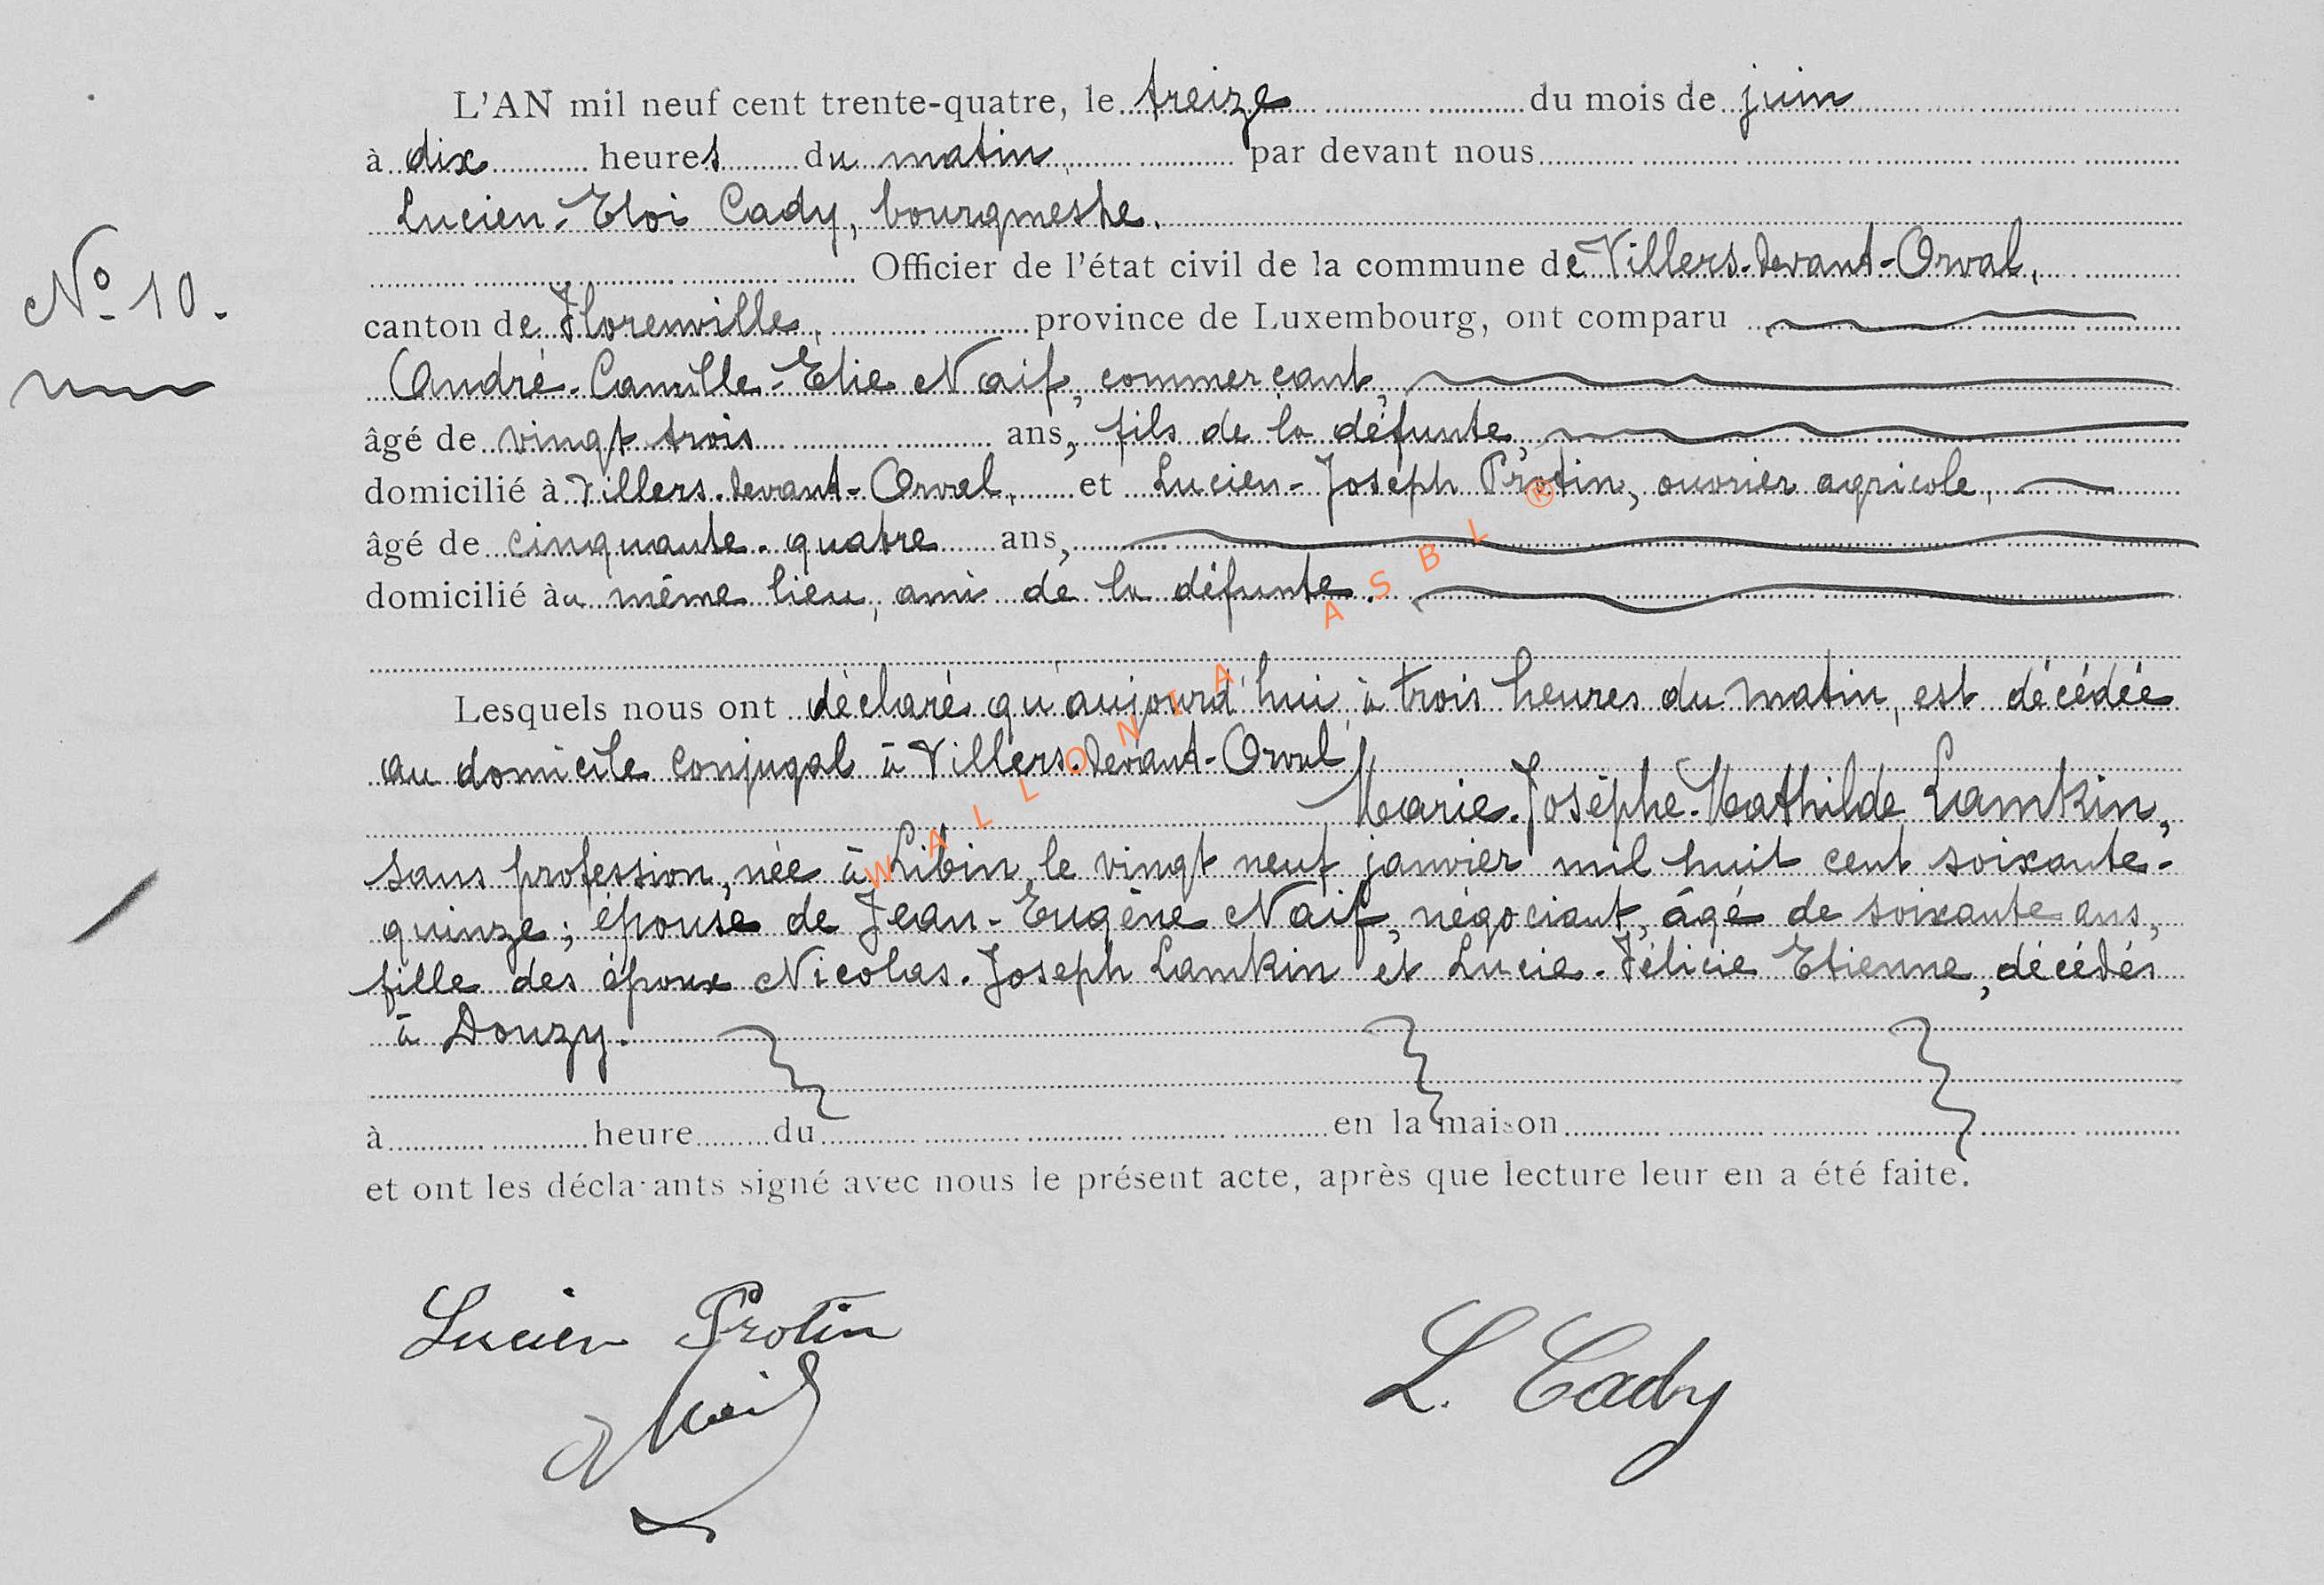 L'AN mil neuf cent trente-quatre, le treize du mois de juin
à dix heures du matin, par devant nous
Lucien-Eloi Cady, bourgmestre.
Officier de l'état civil de la commune de Villers-devant-Orval,
N° 10.
canton de Florenville, province de Luxembourg, ont comparu
André-Camille-Elie Naif, commerçant,
âgé de vingt trois ans, fils de la défunte,
domicilié à Villers-devant-Orval, et Lucien-Joseph Protin, ouvrier agricole,
âgé de cinquante-quatre ans,
domicilié au même lieu, ami de la défunte.
Lesquels nous ont déclaré qu'aujourd'hui à trois heures du matin, est décédée
au domicile conjugal à Villers-devant-Orval
Marie-Josèphe-Mathilde Lamkin,
sans profession, née à Libin, le vingt neuf janvier mil huit cent soixante-
quinze; épouse de Jean-Eugène Naif, négociant, âgé de soixante ans,
fille des époux Nicolas-Joseph Lamkin et Lucie-Félicie Etienne, décédés
à Douzy.
à heure du en la maison
et ont les déclarants signé avec nous le présent acte, après que lecture leur en a été faite.
Lucien Protin
L. Cady
Naif
WALLONIA ASBL ®